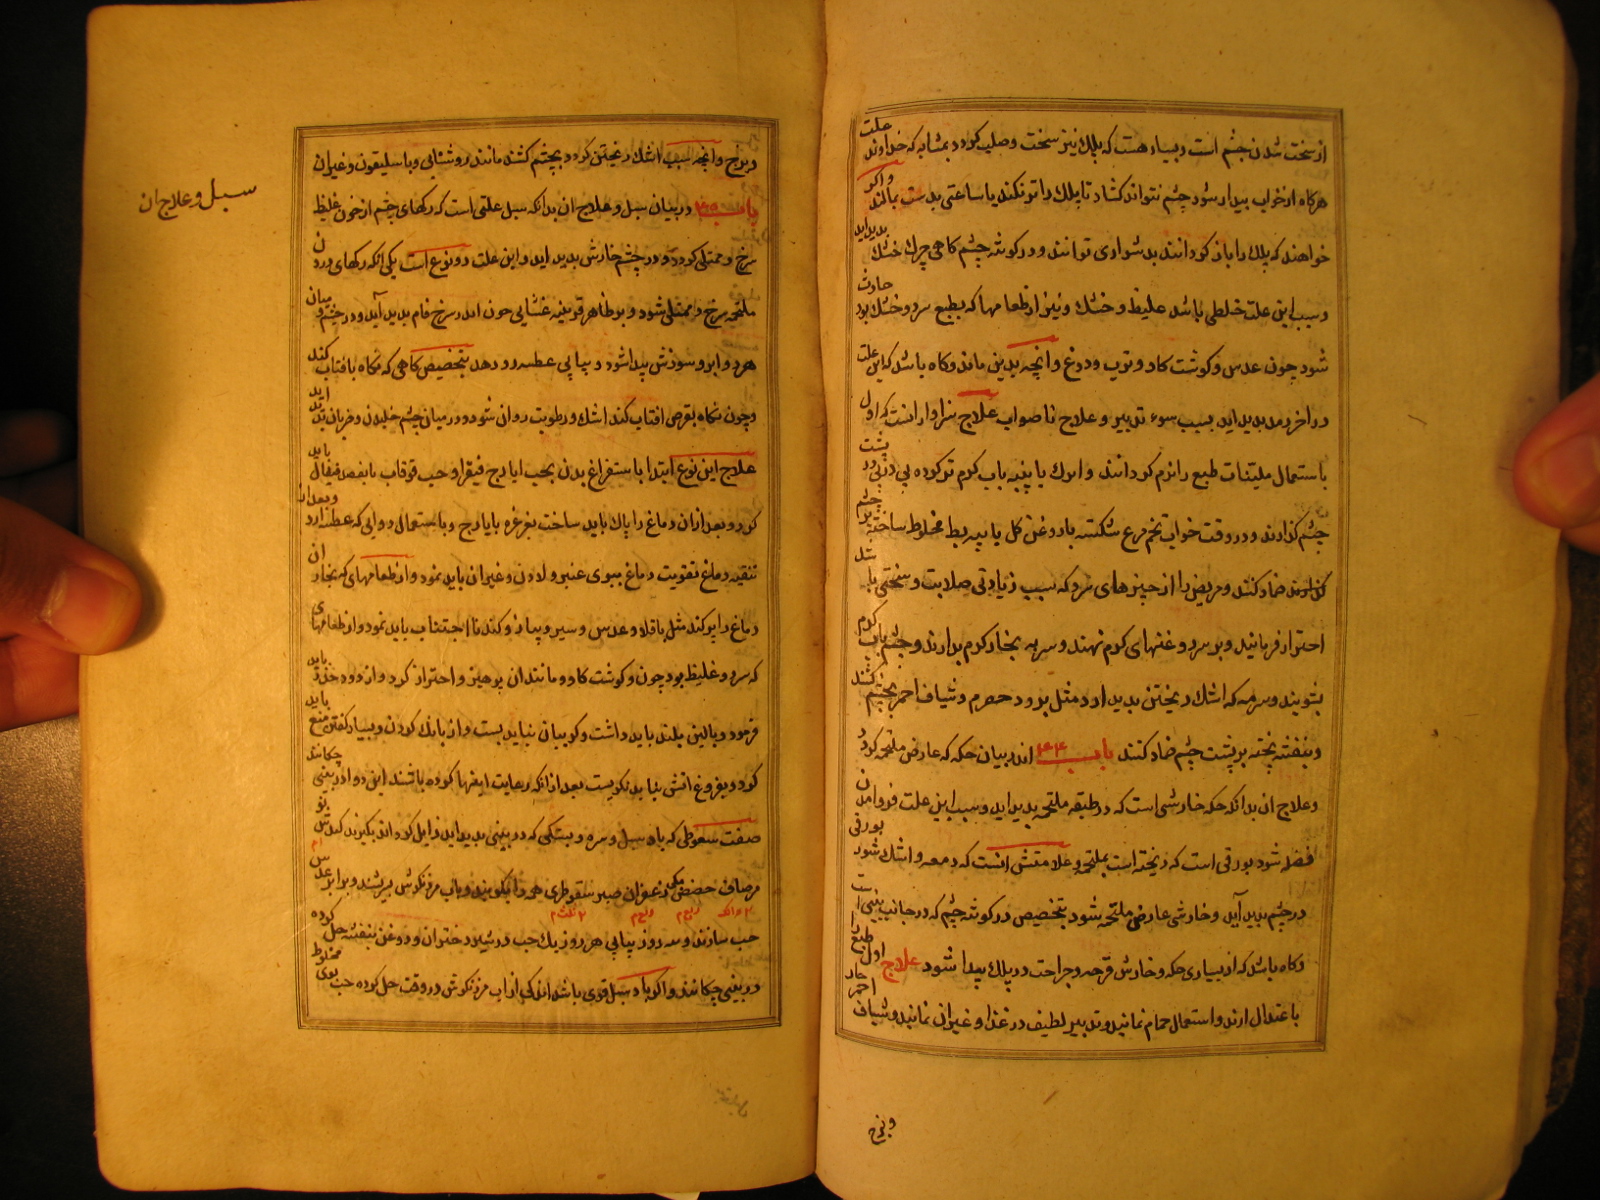 از سخت شدن چشم است و بسیار هست که پلک نیز سخت و صلب کردد بمثابه که خداوند علت
هرکاه از خواب بیدار شود چشم نتواند کشاد تا پلک را تر نکند یا ساعتی بدست بمالد و اکر
خواهند که پلک را باز کردانند بدشواری توانند و در کوشه چشم کاهی چرک خشک بدید اید
و سبب این علت خلطی باشد غلیظ و خشک و نیز از طعامها که بطبع سرد و خشک بود حادث
شود چون عدس و کوشت کاو و توب و دوغ و انچه بدین ماند و کاه باشد که این علت
در اخر رمد بدید اید بسبب سوء تدبیر و علاج نا صواب علاج سزاوار انست که اول
باستعمال ملینات طبع را نرم کردانند و ابرک یا پنبه باب کرم تر کرده پی در پی بر پشت
چشم کذارند و در وقت خواب تخم مرغ شکسته با روغن کل یا پیه بط مخلوط ساخته بر چشم
کذارند ضماد کنند و مریض را از چیزهای سرد که سبب زیادتی صلابت و سختی باشد
احتراز فرمایند و بر سر روغنهای کرم نهند و سر به بخار کرم بدارند و چشم باب کرم
بشویند و سرمه که اشک ریختن بدید اورد مثل برود حصرم و شیاف احمر بچشم کشند
و بنفشه پخته بر پشت چشم ضماد کنند باب ۳۴ اندر بیان حکه که عارض ملتحمه کردد
و علاج ان بدانکه حکه خارشی است که در طبقه ملتحمه بدید اید و سبب این علت فرو امدن
فضله شود بورقی است که ریخته است بملتحمه و علامتش انست که دمعه و اشک شود بورقی
در چشم بدید آید و خارشی عارض ملتحمه شود بتخصیص در کوشه چشم که در جانب بینی است
و کاه باشد که از بسیاری حکه و خارش قرحه و جراحت در پلک پیدا شود علاج اول طبع را
باعتدال ارند و استعمال حمام نمایند و تدبیر لطیف در غذا و غیر ان نمایند و شیاف احمر حاد
و بزج
در بزج و انچه سبب اشک ریختن کردد بچشم کشند مانند روشنائی و باسلیقون و غیر ان
باب ۳۵ در بیان سبل و علاج ان بدانکه سبل علتی است که رکهای چشم از خون غلیظ
سرخ و ممتلی کردد و در چشم خارش بدید اید و این علت دو نوع است یکی انکه رکهای درون
ملتحمه سرخ و ممتلی شود و بر ظاهر قرنیه غشایی چون ابر سرخ فام بدید آید و در چشم و میان
هر دو ابرو سوزش پیدا شود و پیاپی عطسه رو دهد بتخصیص کاهی که نکاه بافتاب کند
و چون نکاه بقرص افتاب کند اشک و رطوبت روان شود و در میان چشم خلیدن و ضربان بدید اید
علاج این نوع ابتدا باستفراغ بدن بحب ایارج فیقرا و حب قوقایا یا بفصد قیفال باید
کرد و بعد از ان دماغ را پاک باید ساخت بغرغره بایارج و باستعمال دوایی که عطسه ارد و بعد از
تنقیه دماغ تقویت دماغ ببوی عنبر و لادن و غیر ان باید نمود و از طعامهای که بخار ان
دماغ را پر کند مثل باقلا و عدس و سیر و پیاز و کندنا اجتناب باید نمود و از طعامهای
که سرد و غلیظ بود چون و کوشت کاو و مانند ان پرهیز و احتراز کرد و از دود حذر باید
فرمود و بالین بلند باید داشت و کریبان نباید بست و از بانک کردن و بسیار کفتن منع باید
کرد و بفروغ اتش نباید نکریست بعد از انکه رعایت اینها کرده باشند این دوا در بینی چکانند
صفت سعوطی که باد سبل و سره و بستکی که در بینی بدید اید زایل کرداند بکیرند کندش
مر صاف حضض مکی زعفران صبر سقوطری همه را بکوبند و باب مرزنکوش بسرشند و برابر عدس
حب سازند و سه روز پیاپی هر روز یک حب در شیر دختران و روغن بنفشه حل کرده
در بینی چکانند و اکر باد سبل قوی باشد اندکی از اب مرزنکوش در وقت حل کرده حب مخلوط
سبل و علاج ان